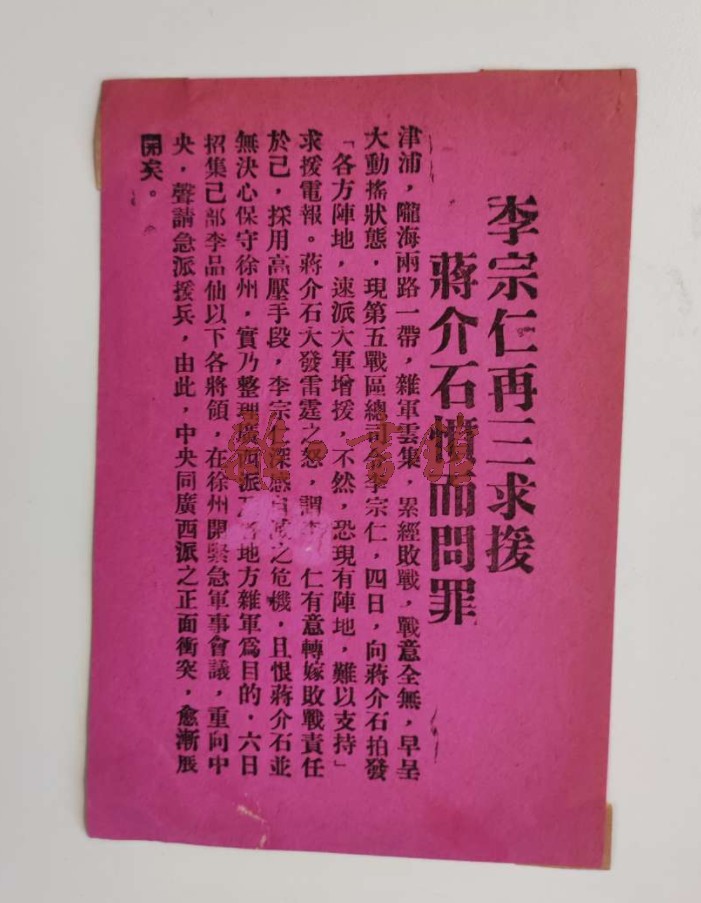 李宗仁再三求援
蔣介石憤而問罪
津浦，隴海兩路一帶，雜軍雲集，累經敗戰，戰意全無，早呈
大動搖狀態，現第五戰區總司令李宗仁，四日，向蔣介石拍發
「各方陣地，速派大軍增援，不然，恐現有陣地，難以支持」
求援電報。蔣介石大發雷霆之怒，謂李 仁有意轉嫁敗戰責任
於己，採用高壓手段，李宗仁深感 之危機，且恨蔣介石並
無決心保守徐州，實乃整理廣西派 地方雜軍爲目的．六日
招集己部李品仙以下各將領，在徐州開緊急軍事會議，重向中
央，聲請急派援兵，由此，中央同廣西派之正面衝突，愈漸展
開矣。